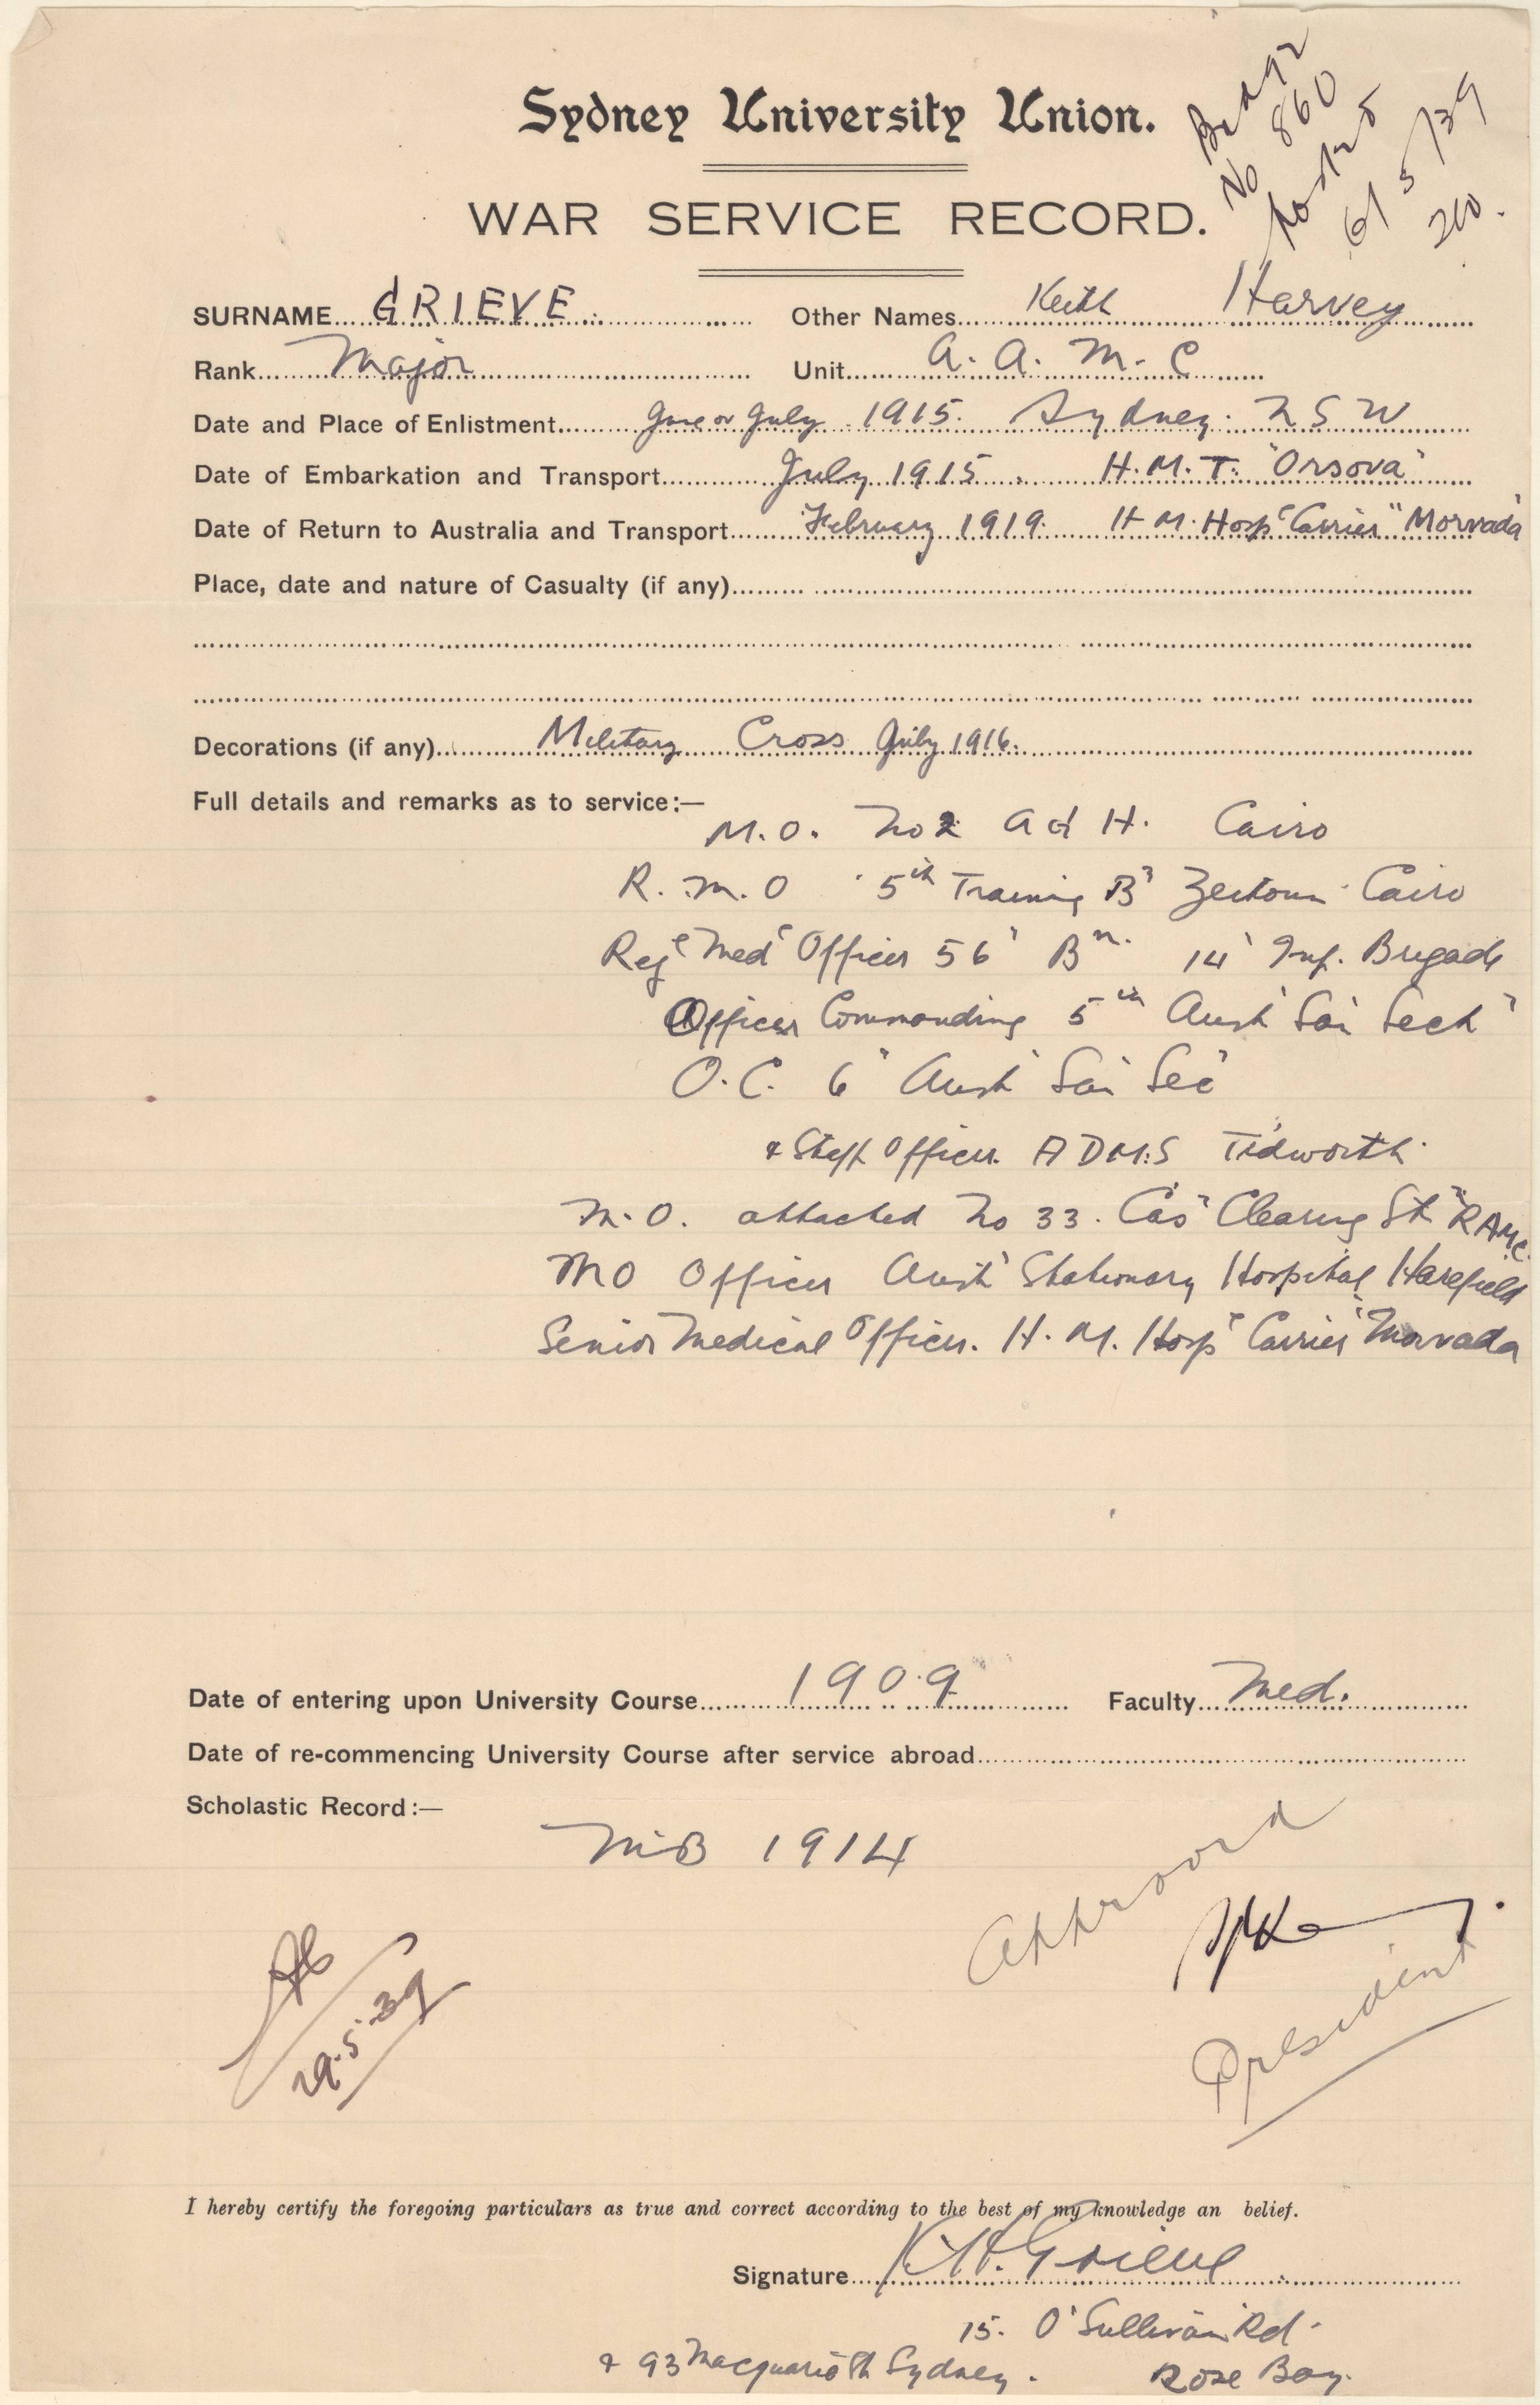 Sydney University Union.
Badge
No 860
posted
6/5/39
WAR SERVICE RECORD.
SURNAME GRIEVE Other Names Keith Harvey
Rank Major Unit A. A. M. C
Date and Place of Enlistment June or July 1915. Sydney. N S W
Date of Embarkation and Transport July 1915. H.M.T. "Orsova"
Date of Return to Australia and Transport February 1919. H M. Hosp Carrier "Morvada"
Place, date and nature of Casualty (if any)
Decorations (if any) Military Cross July 1916.
Full details and remarks as to service:—
M.O. No 2 A G H. Cairo
R. M. O 5th Training Bn Zeitoun Cairo
Reg Med Officer 56 Bn. 14 Inf. Brigade
Officer Commanding 5th Aust San Sect
O.C. 6 Aust San Sec
& Staff Officer. A D M.S Tidworth.
M.O. attached No 33. Cas Clearing St R A M C.
MO Officer Aust Stationary Hospital Harefield
Senior Medical Officer. H. M. Hosp Carrier "Morvada
Date of entering upon University Course 1909 Faculty Med.
Date of re-commencing University Course after service abroad
Scholastic Record:—
M B 1914
Approved
President
29.5.39
I hereby certify the foregoing particulars as true and correct according to the best of my knowledge an belief.
Signature K.H. Grieve
15. O'Sullivan Rd.
& 93 Macquarie St Sydney. Rose Bay.